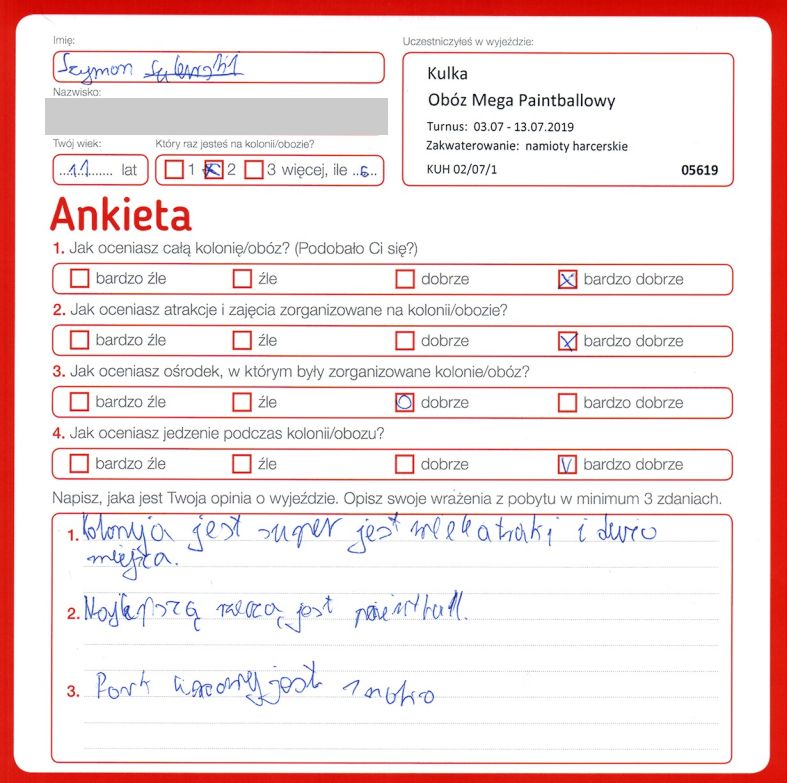 Imię:
Szymon
Nazwisko:
Twój wiek:
11 lat
Który raz jesteś na kolonii/obozie?
1 2 3 więcej, ile 6
Uczestniczyłeś w wyjeździe:
Kulka
Obóz Mega Paintballowy
Turnus: 03.07 - 13.07.2019
Zakwaterowanie: namioty harcerskie
KUH 02/07/1 05619
Ankieta
1. Jak oceniasz całą kolonię/obóz? (Podobało Ci się?)
bardzo źle źle dobrze bardzo dobrze
2. Jak oceniasz atrakcje i zajęcia zorganizowane na kolonii/obozie?
bardzo źle źle dobrze bardzo dobrze
3. Jak oceniasz ośrodek, w którym były zorganizowane kolonie/obóz?
bardzo źle źle dobrze bardzo dobrze
4. Jak oceniasz jedzenie podczas kolonii/obozu?
bardzo źle źle dobrze bardzo dobrze
Napisz, jaka jest Twoja opinia o wyjeździe. Opisz swoje wrażenia z pobytu w minimum 3 zdaniach.
1. Kolonyja jest super jest i
miejsca.
2. Najlepszą rzeczą jest paintball.
3. Park jest